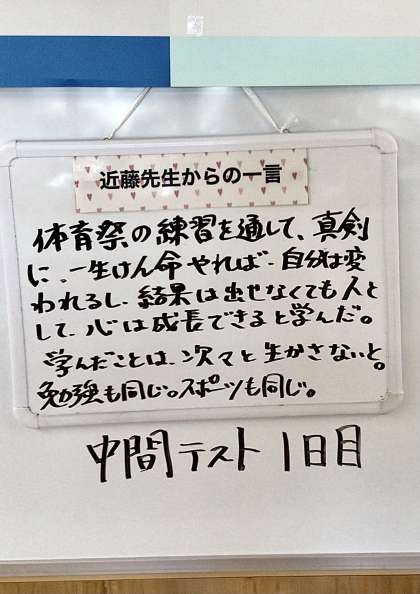 近藤先生からの一言
体育祭の練習を通して、真剣
に、一生けん命やれば、自分は変
われるし、結果は出せなくても人と
して、心は成長できると学んだ。
学んだことは、次々と生かさないと。
勉強も同じ。スポーツも同じ。
中間テスト 1日目